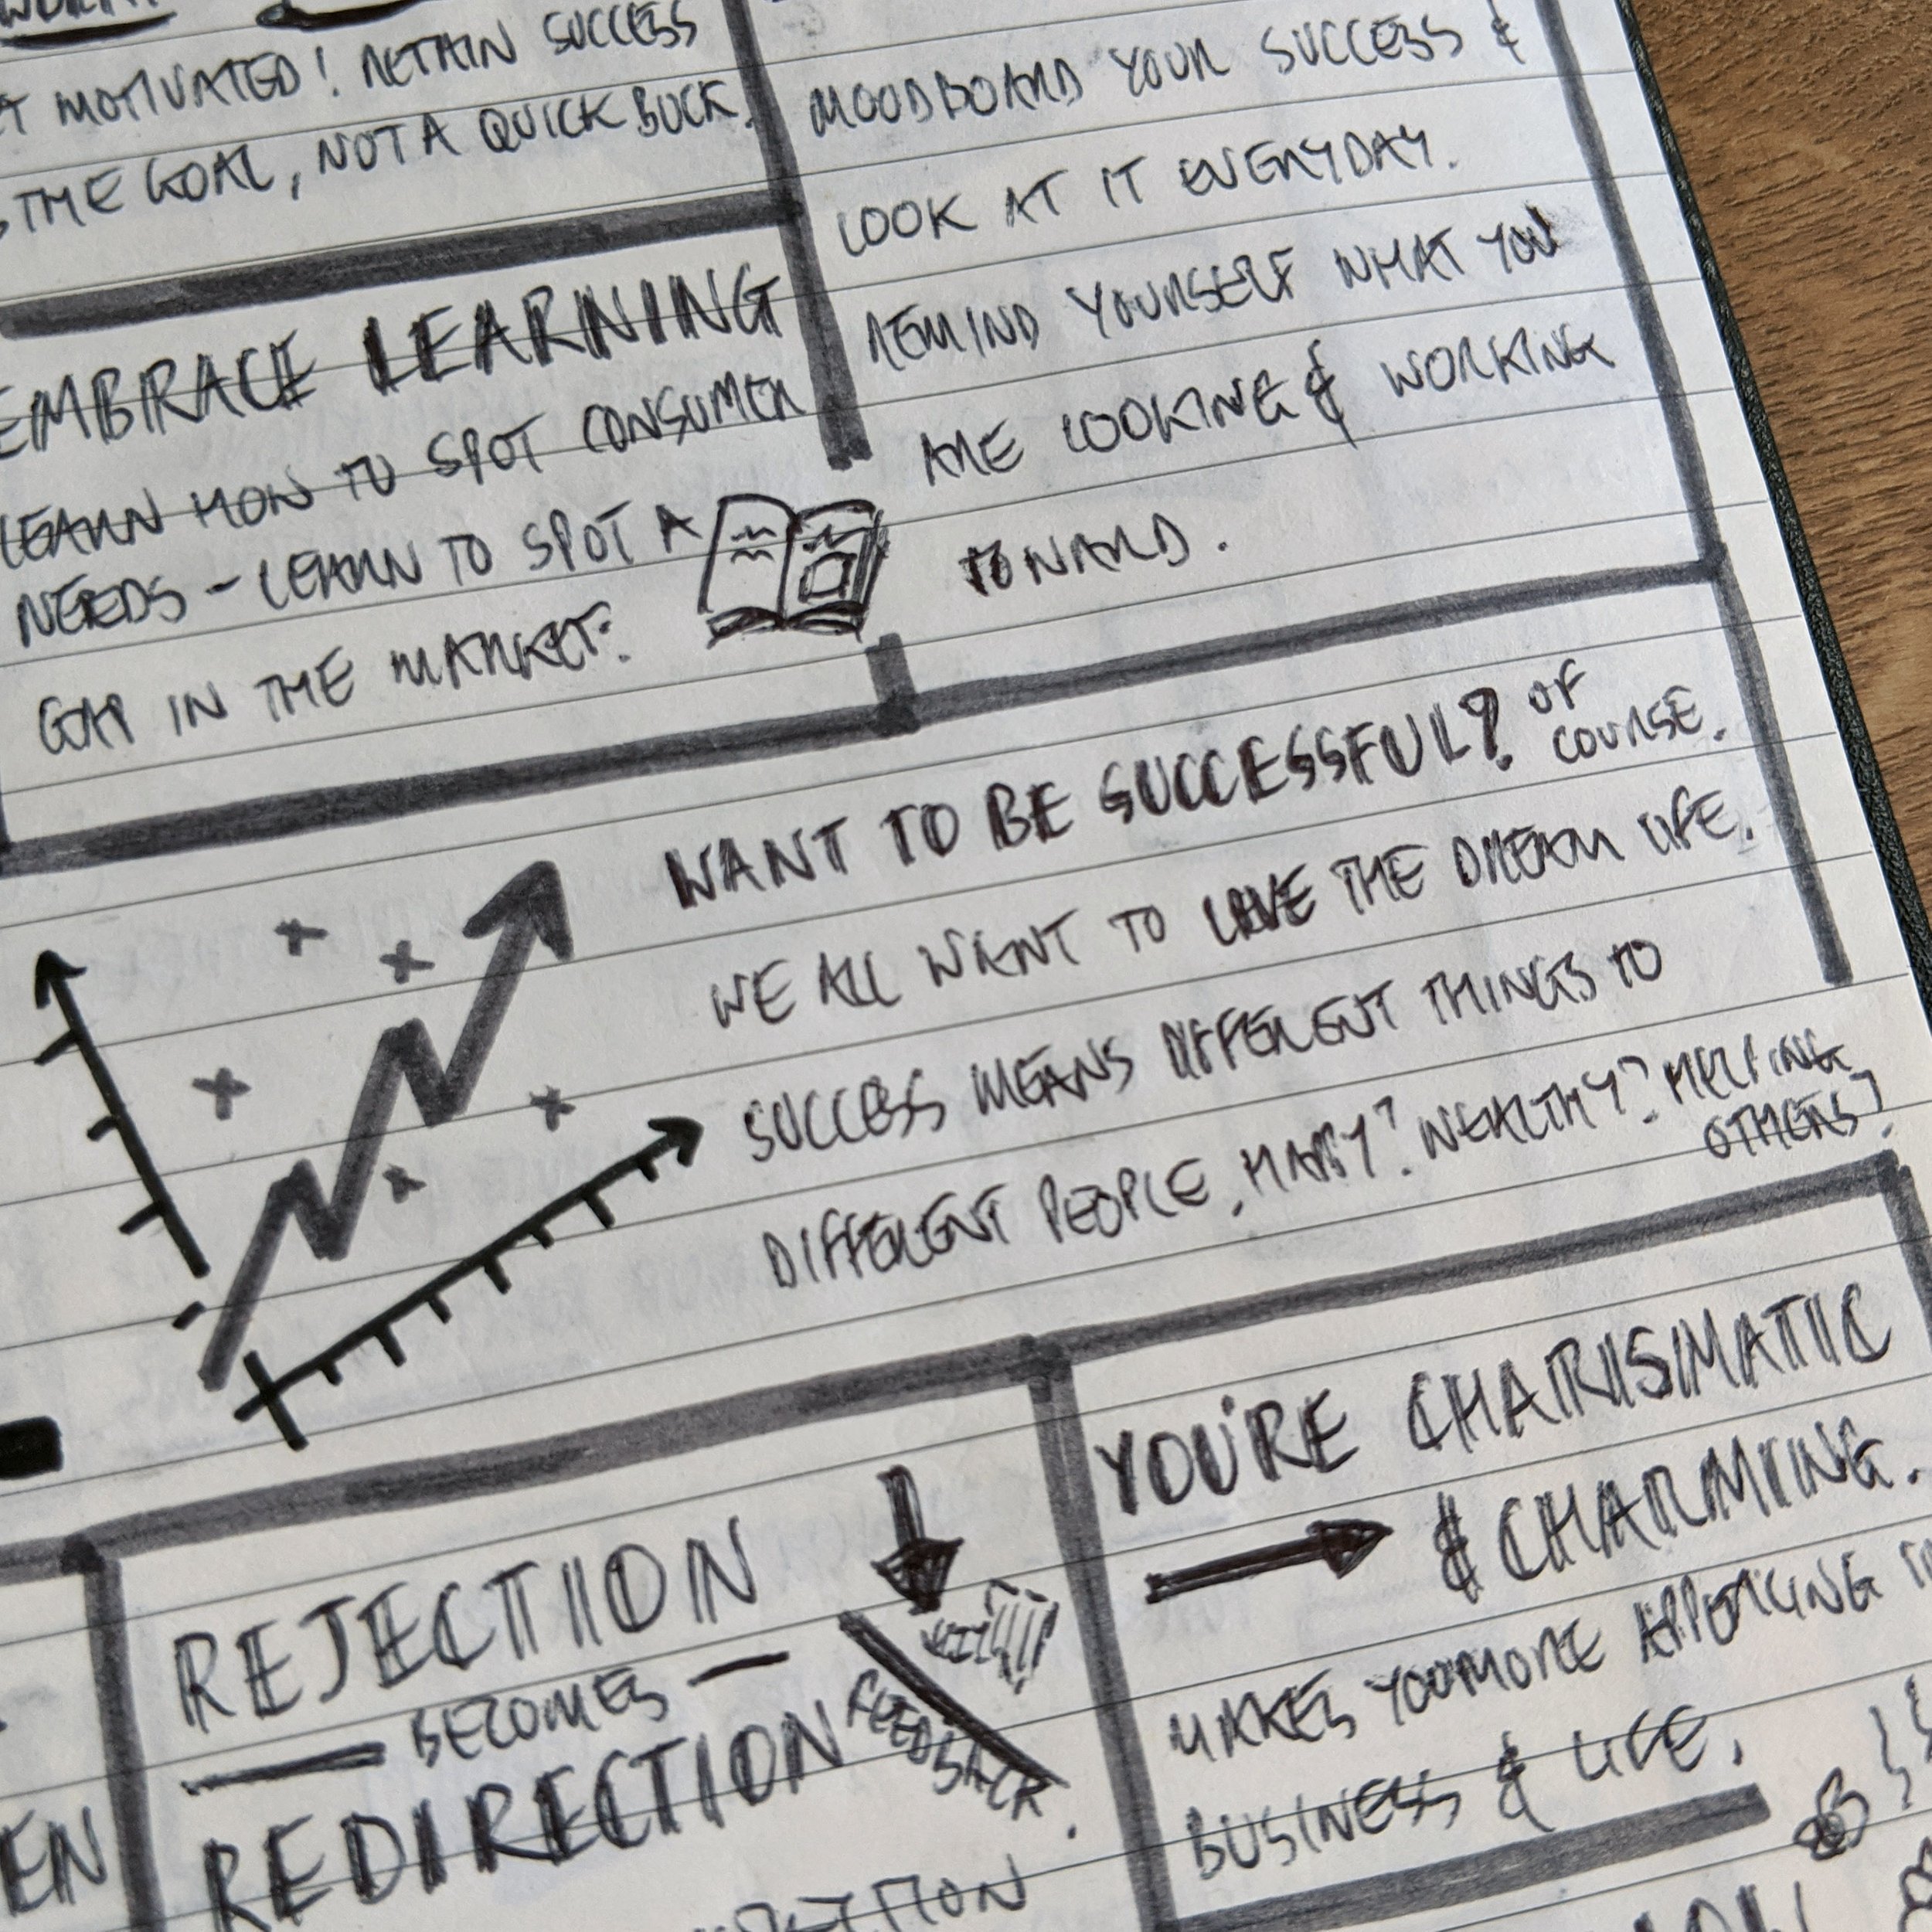 MOTIVATED! RETAIN SUCCESS
THE GOAL, NOT A QUICK BUCK.
EMBRACE LEARNING
LEARN HOW TO SPOT CONSUMER
NEEDS - LEARN TO SPOT A
GAP IN THE MARKET.
MOODBOARD YOUR SUCCESS &
LOOK AT IT EVERYDAY.
REMIND YOURSELF WHAT YOU
ARE LOOKING & WORKING
TOWARD.
WANT TO BE SUCCESSFUL? OF
COURSE.
WE ALL WANT TO LIVE THE DREAM LIFE.
SUCCESS MEANS DIFFERENT THINGS TO
DIFFERENT PEOPLE, HAPPY? WEALTHY? HELPING
OTHERS?
REJECTION
BECOMES
REDIRECTION
FEEDBACK.
YOU'RE CHARISMATIC
& CHARMING.
MAKES YOU MORE APPEALING
BUSINESS & LIFE.